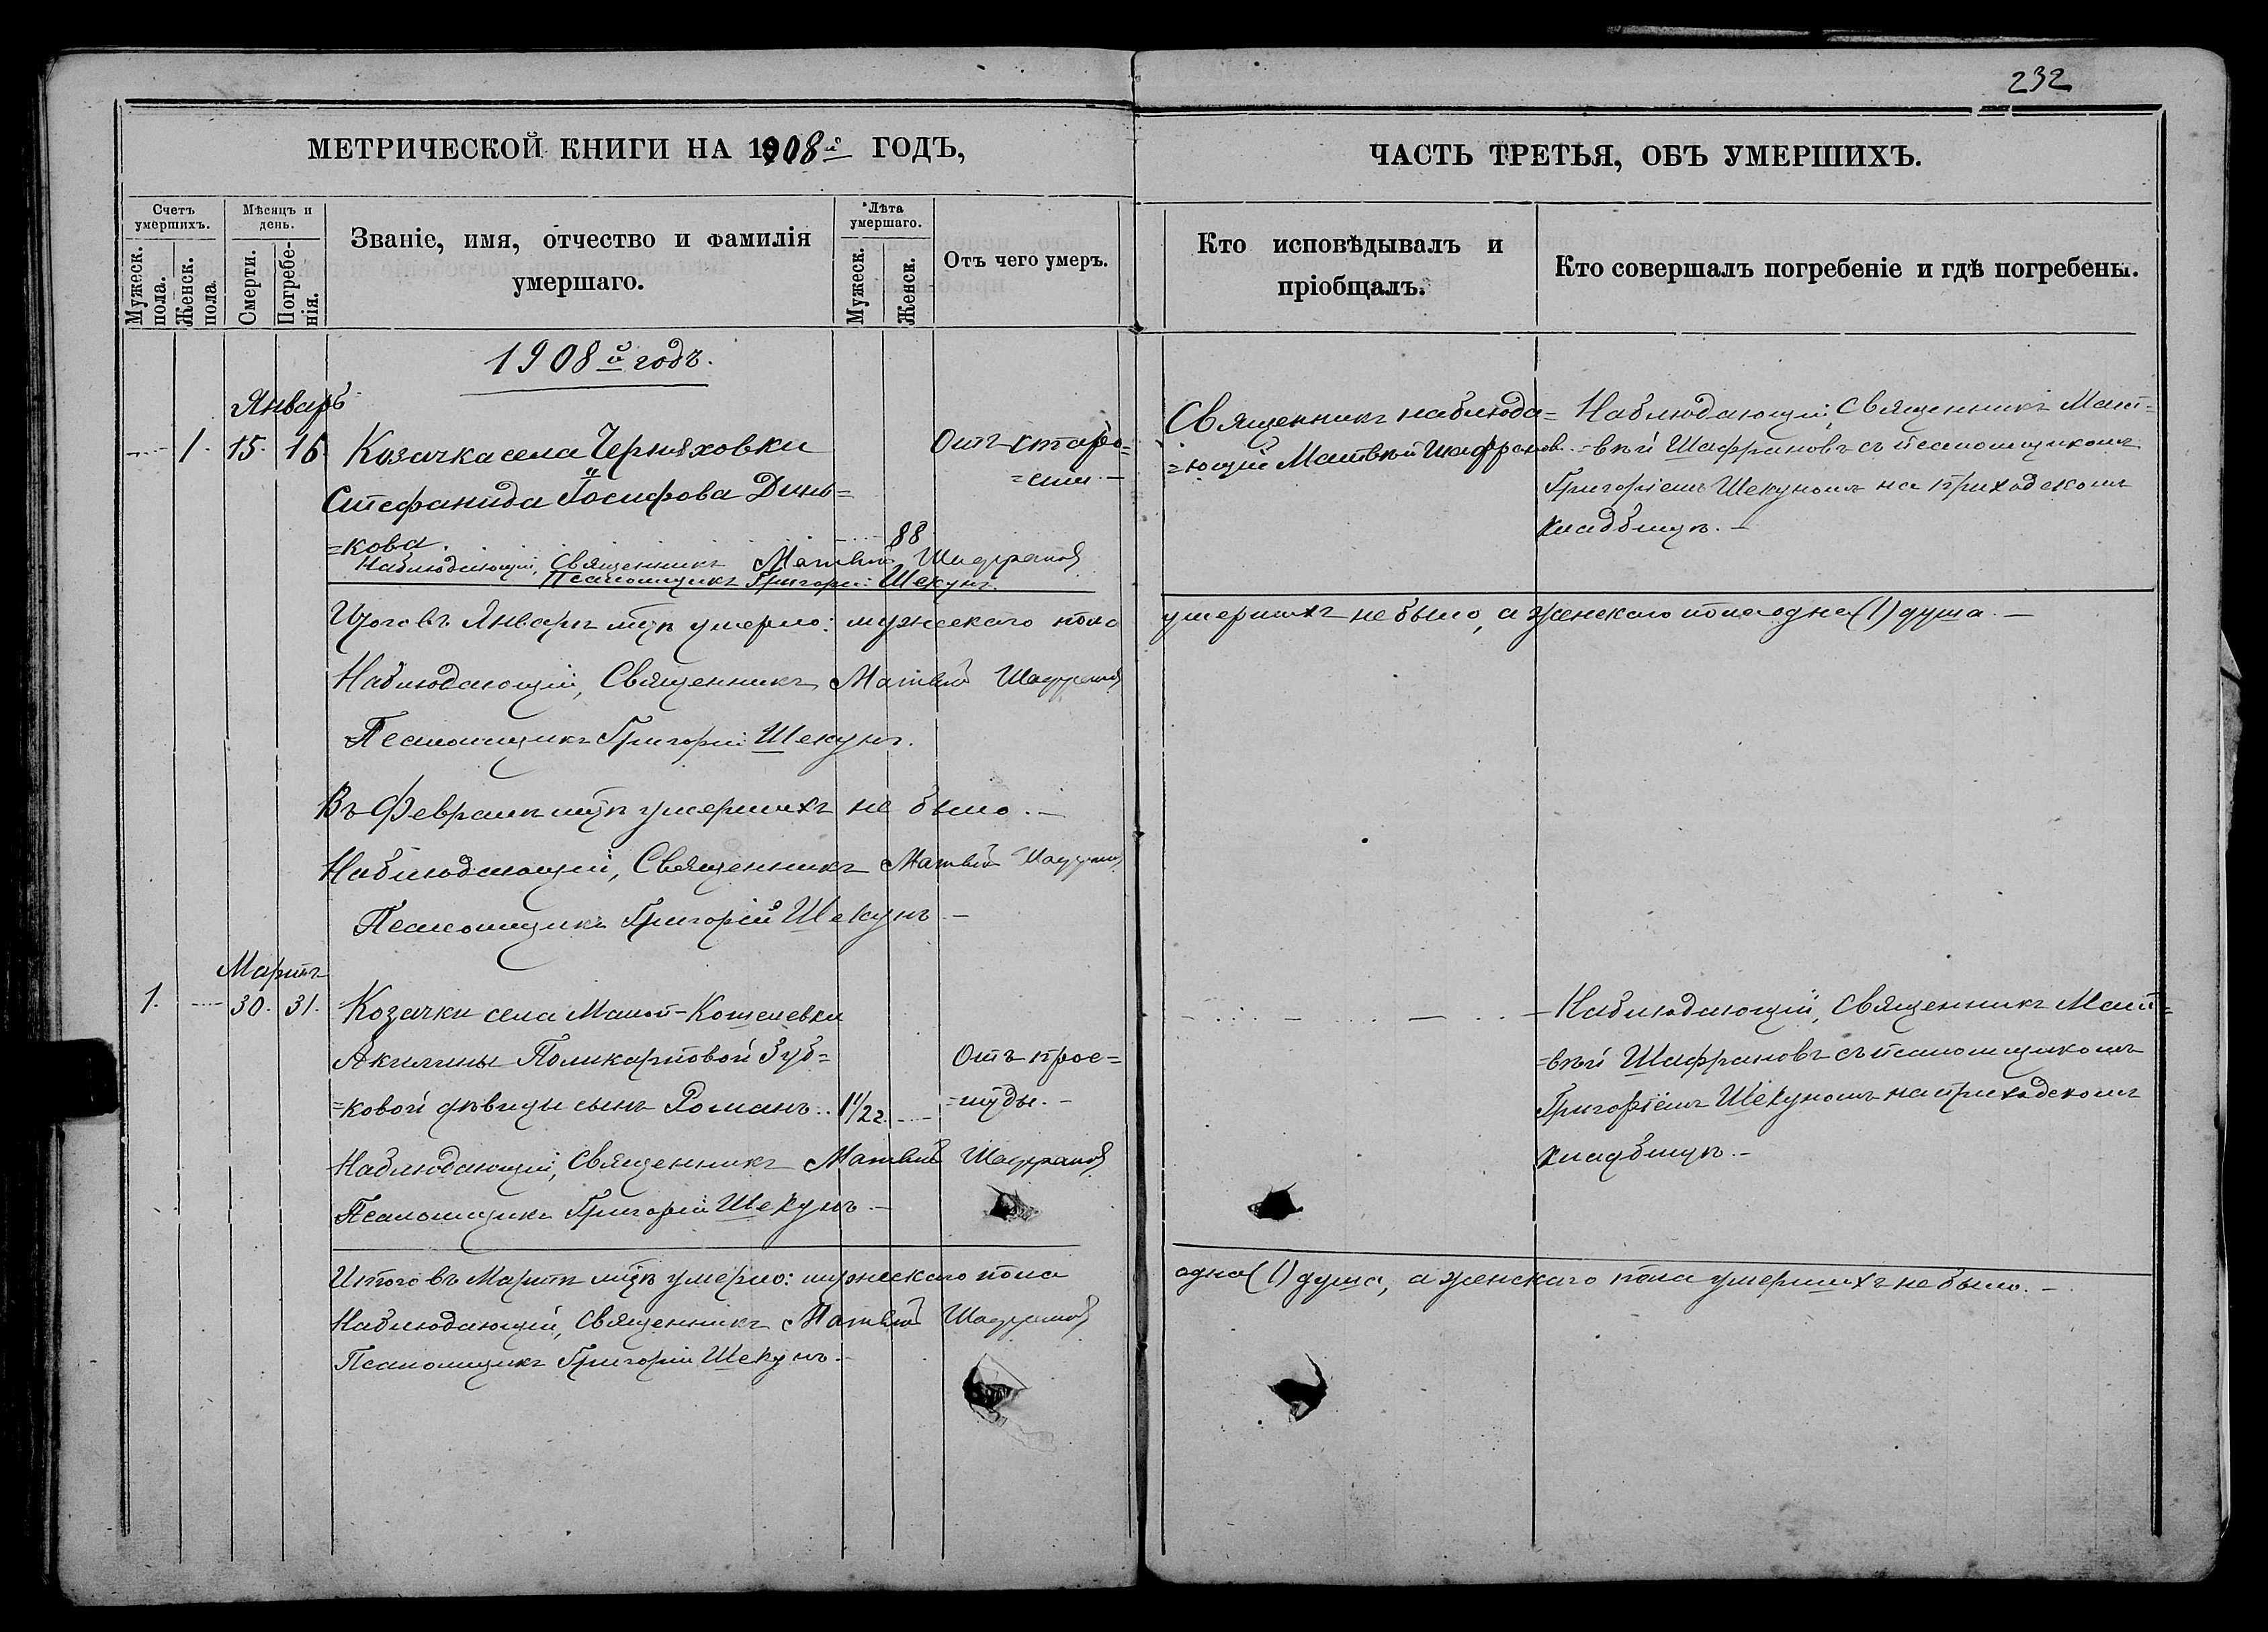 232
МЕТРИЧЕСКОЙ КНИГИ НА 1908й ГОДЪ,
ЧАСТЬ ТРЕТЬЯ, ОБЪ УМЕРШИХЪ.
Счетъ умершихъ.
Мужеск. пола.
Женск. пола.
Мѣсяцъ и день.
Смерти.
Погребенія.
Званіе, имя, отчество и фамилія
умершаго.
Лѣта умершаго.
Мужеск.
Женск.
Отъ чего умеръ.
Кто исповѣдывалъ и
пріобщалъ.
Кто совершалъ погребеніе и гдѣ погребены.
1908й годъ.
Январь
1. 15. 16. Козачка села Черняховки
Стефанида Іосифова Динь=
=кова. 88
Отъ старо=
=сти. —
Священникъ наблюда=
=ющій Матвѣй Шафрановъ.
Наблюдающій, Священникъ Мат=
=вѣй Шафрановъ съ псаломщикомъ
Григоріемъ Шекуномъ на приходскомъ
кладбищѣ. —
Наблюдающій, Священникъ Матвѣй Шафрановъ
Псаломщикъ Григорій Шекунъ.
Итого въ Январѣ м-цѣ умерло: мужескаго пола умершихъ не было, а женскаго пола одна (1) душа. —
Наблюдающій, Священникъ Матвѣй Шафрановъ
Псаломщикъ Григорій Шекунъ.
Въ Февралѣ м-цѣ умершихъ не было. —
Наблюдающій, Священникъ Матвѣй Шафрановъ
Псаломщикъ Григорій Шекунъ —
Мартъ
1. 30. 31. Козачки села Малой-Кошелевки
Акилины Поликарповой Зуб=
=ковой дѣвицы сынъ Романъ.. 1 1/2 г.
Отъ прос=
=туды. —
Наблюдающій, Священникъ Мат=
=вѣй Шафрановъ съ псаломщикомъ
Григоріемъ Шекуномъ на приходскомъ
кладбищѣ. —
Наблюдающій, Священникъ Матвѣй Шафрановъ
Псаломщикъ Григорій Шекунъ. —
Итого въ Мартѣ м-цѣ умерло: мужескаго пола одна (1) душа, а женскаго пола умершихъ не было. —
Наблюдающій, Священникъ Матвѣй Шафрановъ
Псаломщикъ Григорій Шекунъ. —